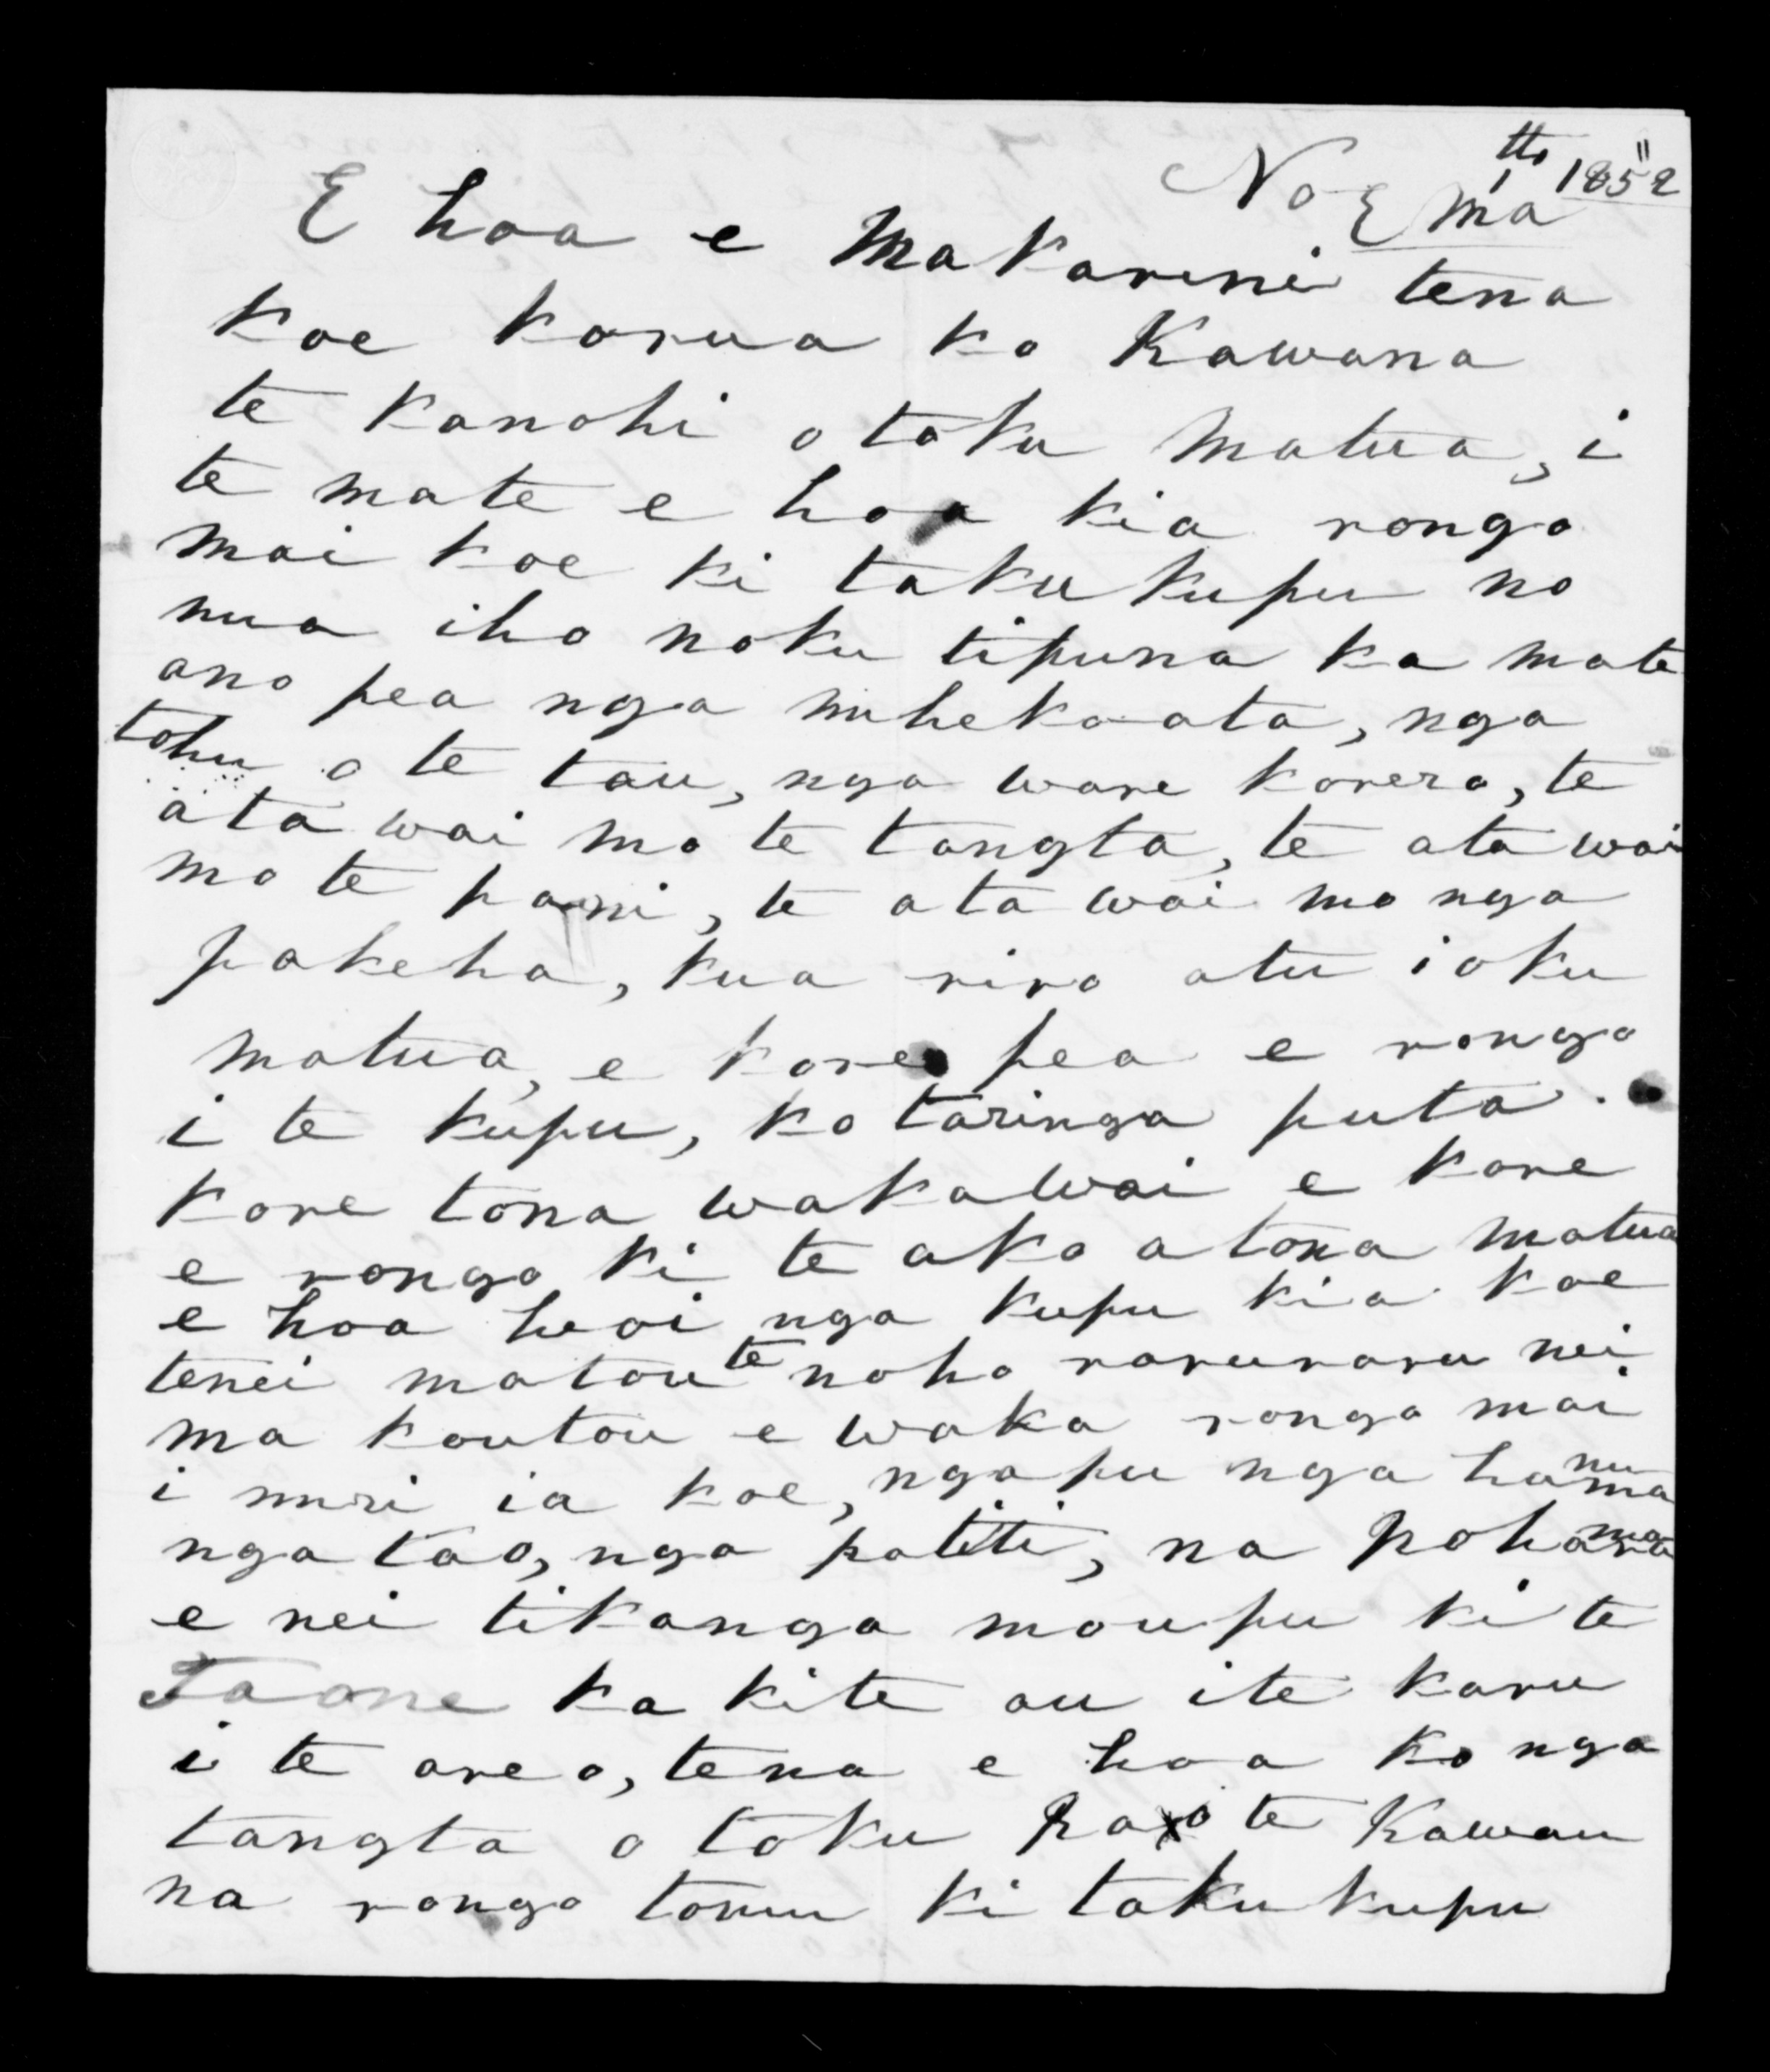 Noema 1th 1852
E hoa e Makarini tena
koe korua ko Kawana
te kanohi o toku matua, i
te mate e hoa kia rongo
mai koe ki taku kupu no
nua iho noku tipuna ka mate
ano pea nga mihekaata, nga
tohu o te tau, nga ware korero, te
ata wai mo te tangta, te ata wai
mo te pani, te ata wai mo nga
pakeha, kua riro atu i oku
matua, e kore pea e rongo
i te kupu, ko taringa puta.
kore tona wakawai e kore
e rongo ki te ako a tona matua
e hoa heoi nga kupu kia koe
tenei matou te noho raruraru nei
ma koutou e waka rongo mai
i muri ia koe, nga pu nga hanuma
nga tao, nga patiti, na Pohama
e nei tikanga mou pu ki te
Taone ka kite au ite karu
i te areo, tena e hoa ko nga
tangta o toku Pa o te Kawau
na rongo tonu ki taku kupu